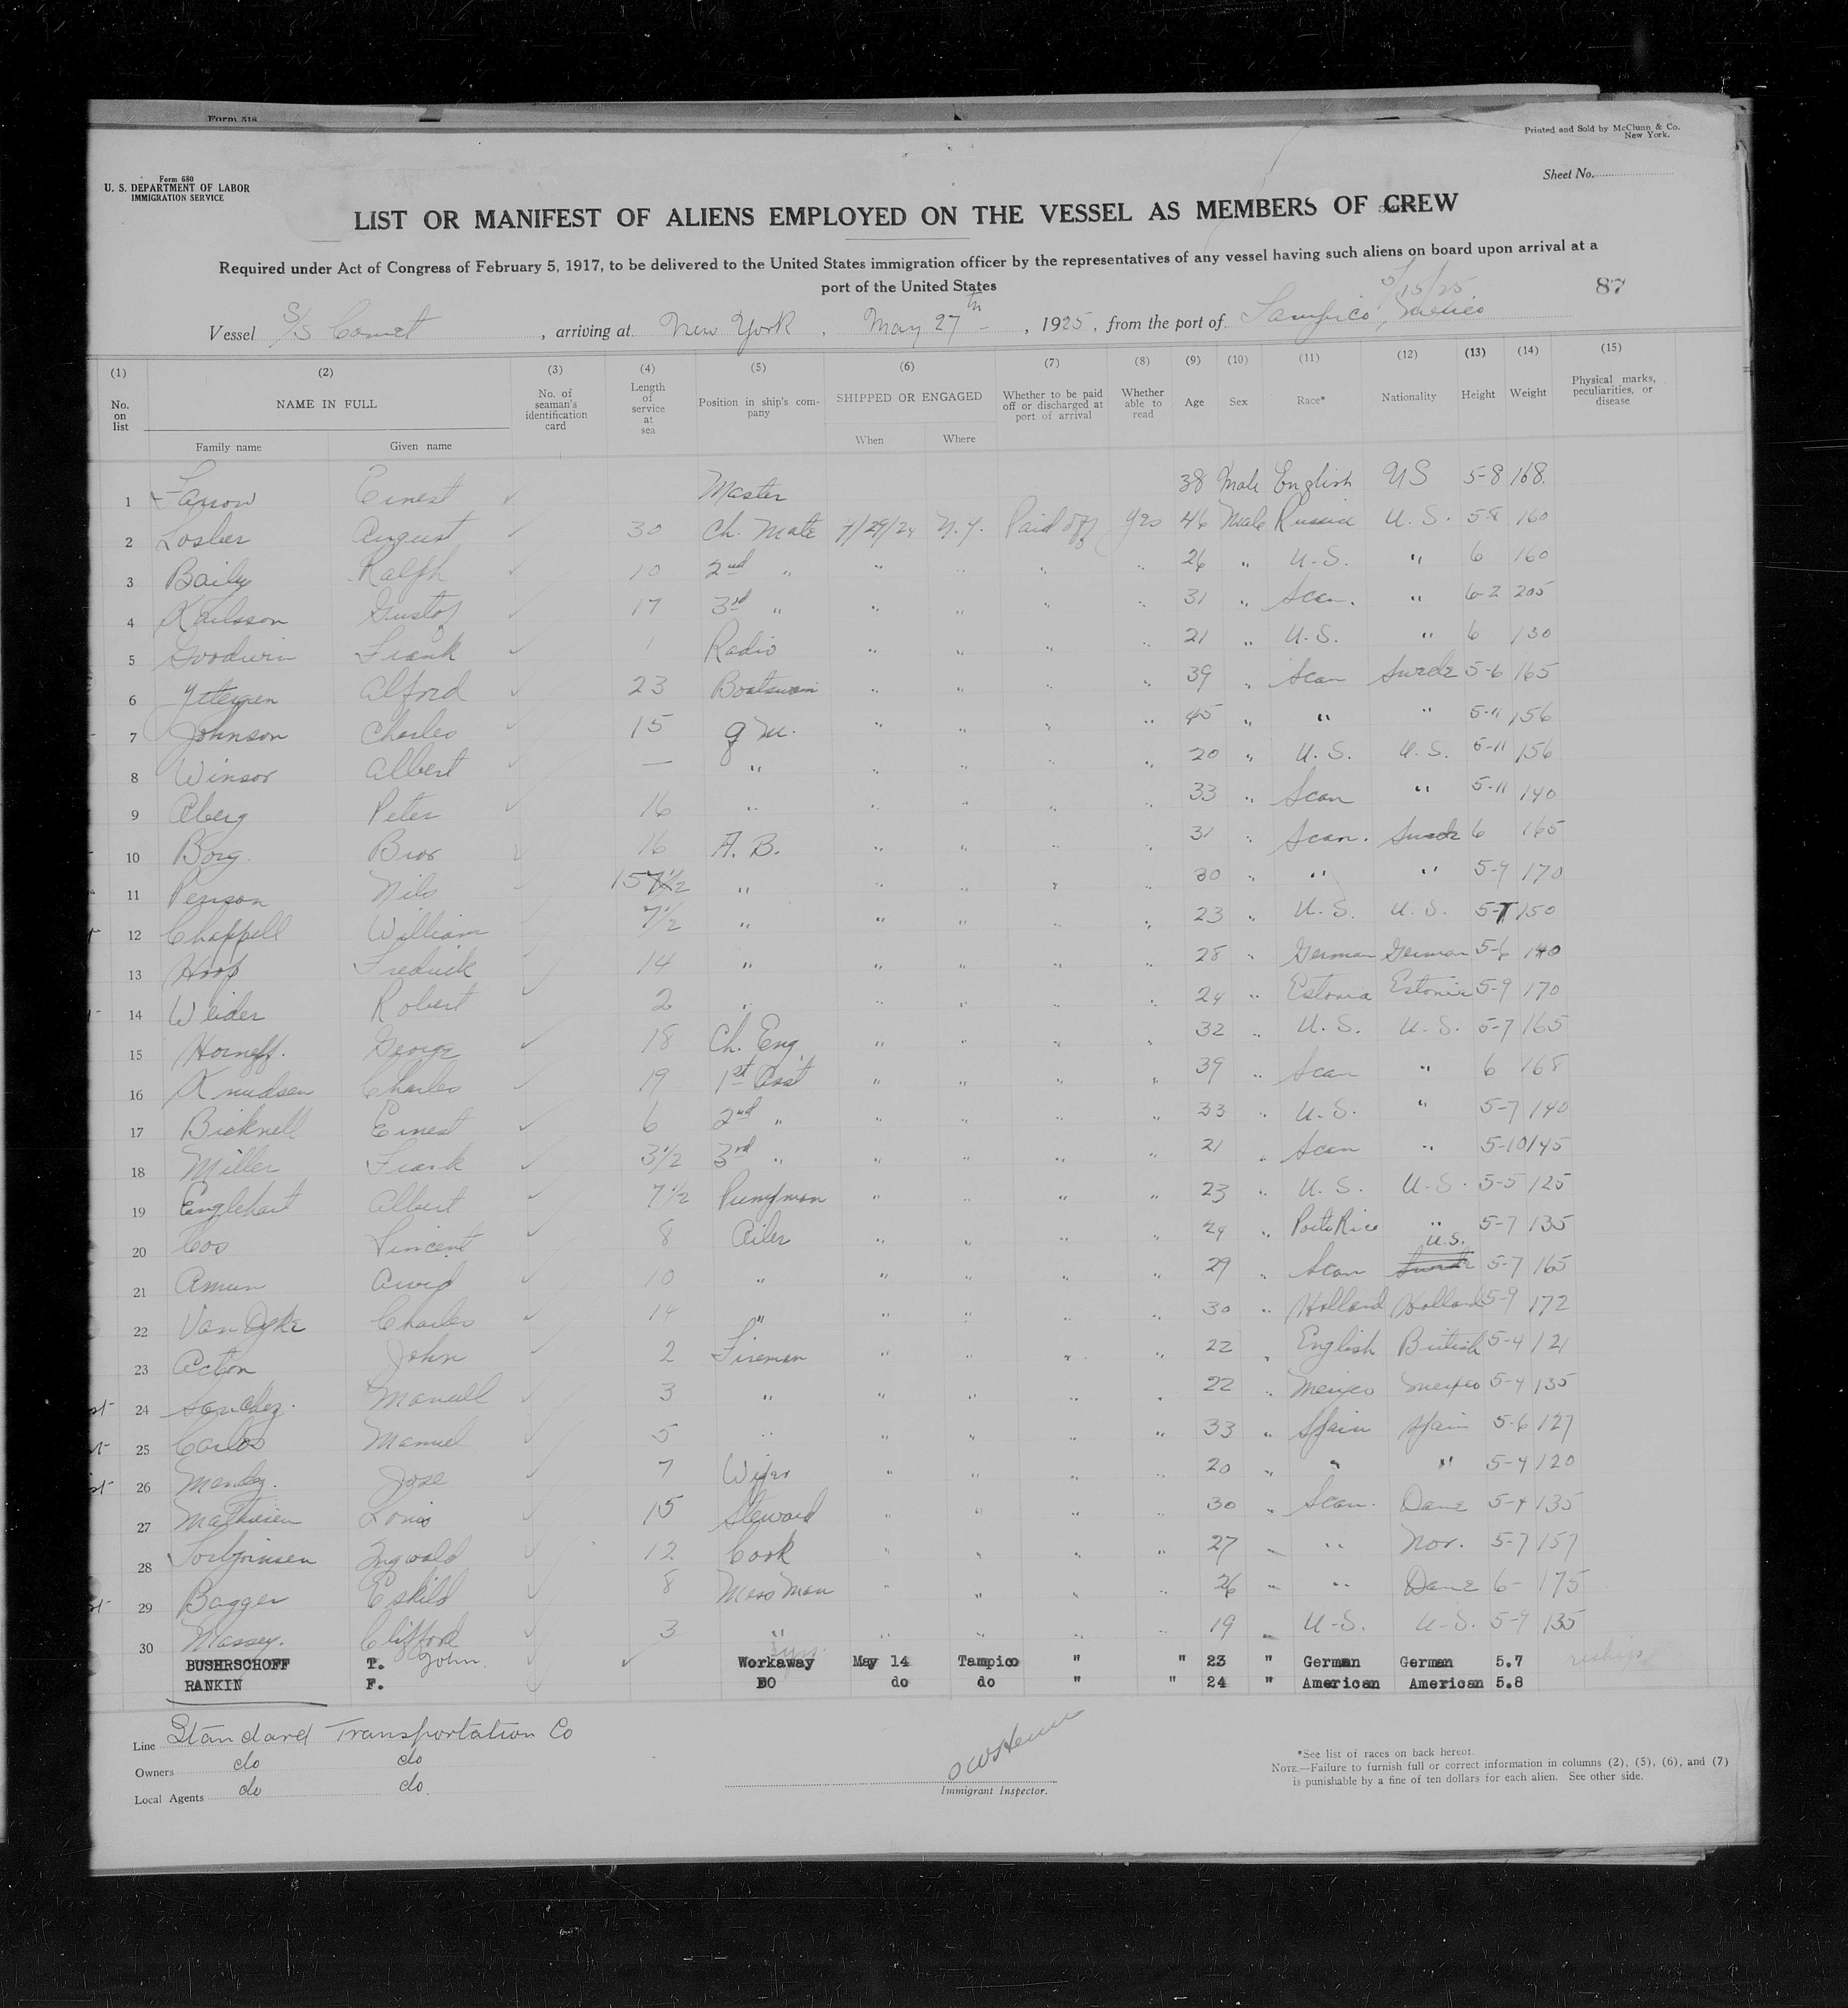 Form 518
Printed and Sold by McClunn & Co.
New York.
Form 680
U. S. DEPARTMENT OF LABOR
IMMIGRATION SERVICE
Sheet No.
LIST OR MANIFEST OF ALIENS EMPLOYED ON THE VESSEL AS MEMBERS OF CREW
Required under Act of Congress of February 5, 1917, to be delivered to the United States immigration officer by the representatives of any vessel having such aliens on board upon arrival at a
port of the United States
5/15/25
87
Vessel S/S Comet, arriving at New York, May 27th, 1925, from the port of Tampico, Mexico
(1) (2) (3) (4) (5) (6) (7) (8) (9) (10) (11) (12) (13) (14) (15)
No. on list NAME IN FULL No. of seaman's identification card Length of service at sea Position in ship's company SHIPPED OR ENGAGED Whether to be paid off or discharged at port of arrival Whether able to read Age Sex Race* Nationality Height Weight Physical marks, peculiarities, or disease
Family name Given name When Where
1 Ernest Master 38 Male English US 5-8 168.
2 Losber August 30 Ch. Mate 7/29/24 N.Y. Paid off Yes 46 Male Russia U.S. 5-8 160
3 Baily Ralph 10 2nd " " " " " 26 " U.S. " 6 160
4 Karlsson Gustof 17 3rd " " " " " 31 " Scan. " 6-2 205
5 Goodwin Frank 1 Radio " " " " 21 " U.S. " 6 130
6 Alfred 23 Boatswain " " " " 39 " Scan Swede 5-6 165
7 Johnson Charles 15 Q M. " " " " 45 " " " 5-11 156
8 Winsor Albert — " " " " " 20 " U.S. U.S. 5-11 156
9 Aberg Peter 16 " " " " " 33 " Scan " 5-11 140
10 Borg Bror 16 A. B. " " " " 31 " Scan. Swede 6 165
11 Person Nils 15 " " " " " 30 " " " 5-9 170
12 Chappell William 7½ " " " " " 23 " U.S. U.S. 5-7 150
13 Hoof Fredrick 14 " " " " " 28 " German German 5-6 140
14 Weider Robert 2 " " " " " 24 " Estonia Estonia 5-9 170
15 Horneff. George 18 Ch. Eng. " " " " 32 " U.S. U.S. 5-7 165
16 Knudsen Charles 19 1st Asst " " " " 39 " Scan " 6 168
17 Bicknell Ernest 6 2nd " " " " " 33 " U.S. " 5-7 140
18 Miller Frank 3½ 3rd " " " " " 21 " Scan " 5-10 145
19 Englehart Albert 7½ Pumpman " " " " 23 " U.S. U.S. 5-5 125
20 Cos Vincent 8 Oiler " " " " 24 " Porto Rico " 5-7 135
21 Amun Arvid 10 " " " " " 29 " Scan U.S. Swede 5-7 165
22 Van Dyke Charles 14 " " " " " 30 " Holland Holland 5-9 172
23 Acton John 2 Fireman " " " " 22 " English British 5-4 121
24 Sanchez. Manuell 3 " " " " " 22 " Mexico Mexico 5-4 135
25 Carlos Manuel 5 " " " " " 33 " Spain Spain 5-6 127
26 Mendez. Jose 7 Wiper " " " " 20 " " " 5-4 120
27 Mathiesen Louis 15 Steward " " " " 30 " Scan. Dane 5-4 135
28 Torbjornsen Ingvald 12 Cook " " " " 27 " " Nor. 5-7 157
29 Bagger Eskild 8 Mess Man " " " " 26 " " Dane 6- 175
30 Massey. Clifford 3 " " " " " 19 " U.S. U.S. 5-9 135
BUSHRSCHOFF T. John. Workaway May 14 Tampico " " 23 " German German 5.7
RANKIN F. DO do do " " 24 " American American 5.8
Line Standard Transportation Co
Owners do do
Local Agents do do.
Immigrant Inspector.
*See list of races on back hereof.
NOTE.—Failure to furnish full or correct information in columns (2), (5), (6), and (7)
is punishable by a fine of ten dollars for each alien. See other side.